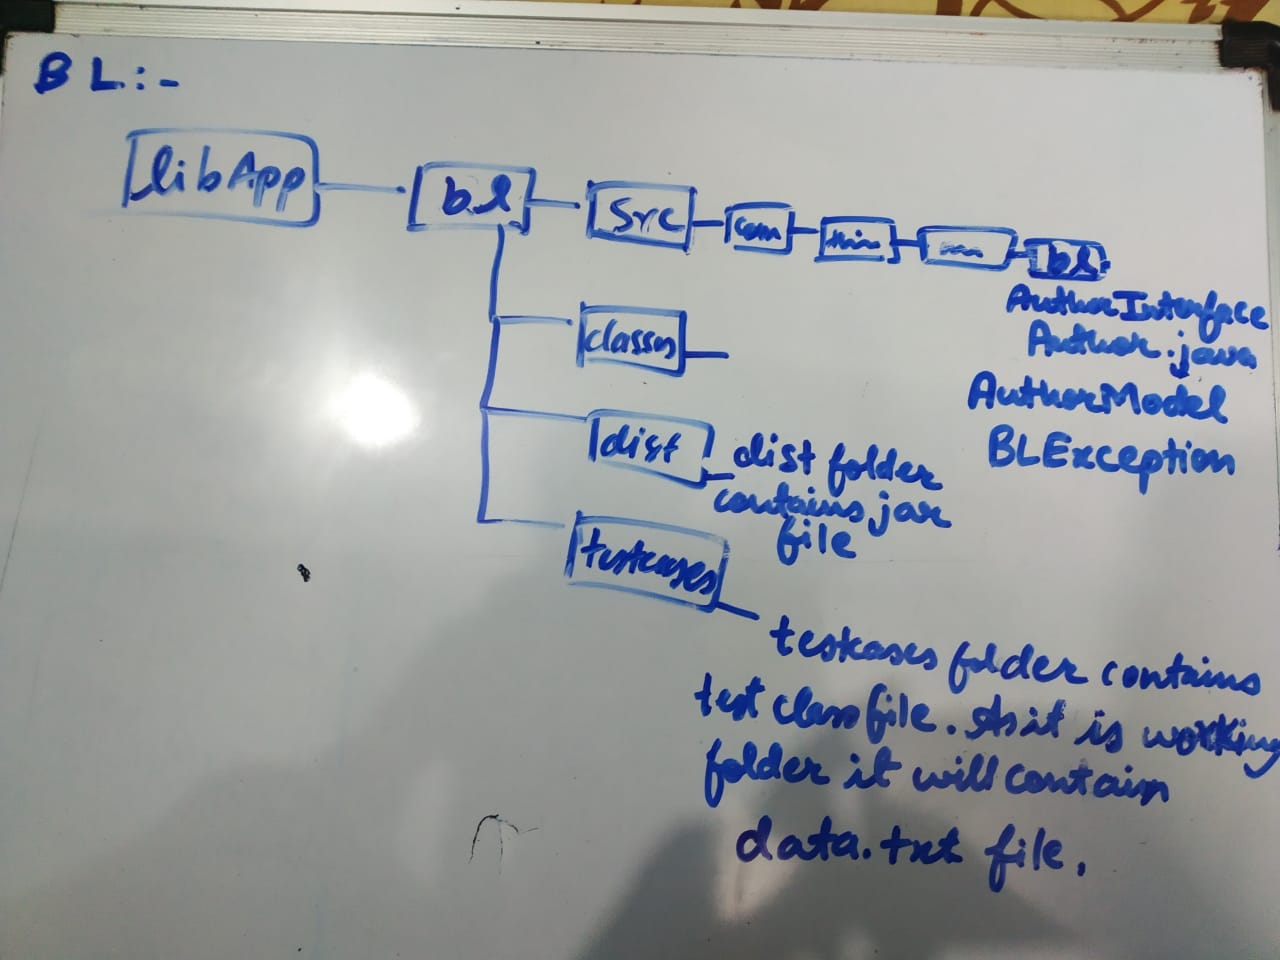 BL:-
libApp
bl
src
com
bl
AuthorInterface
Author.java
AuthorModel
BLException
classes
dist
dist folder
contains jar
file
testcases
testcases folder contains
test class file. As it is working
folder it will contain
data.txt file.